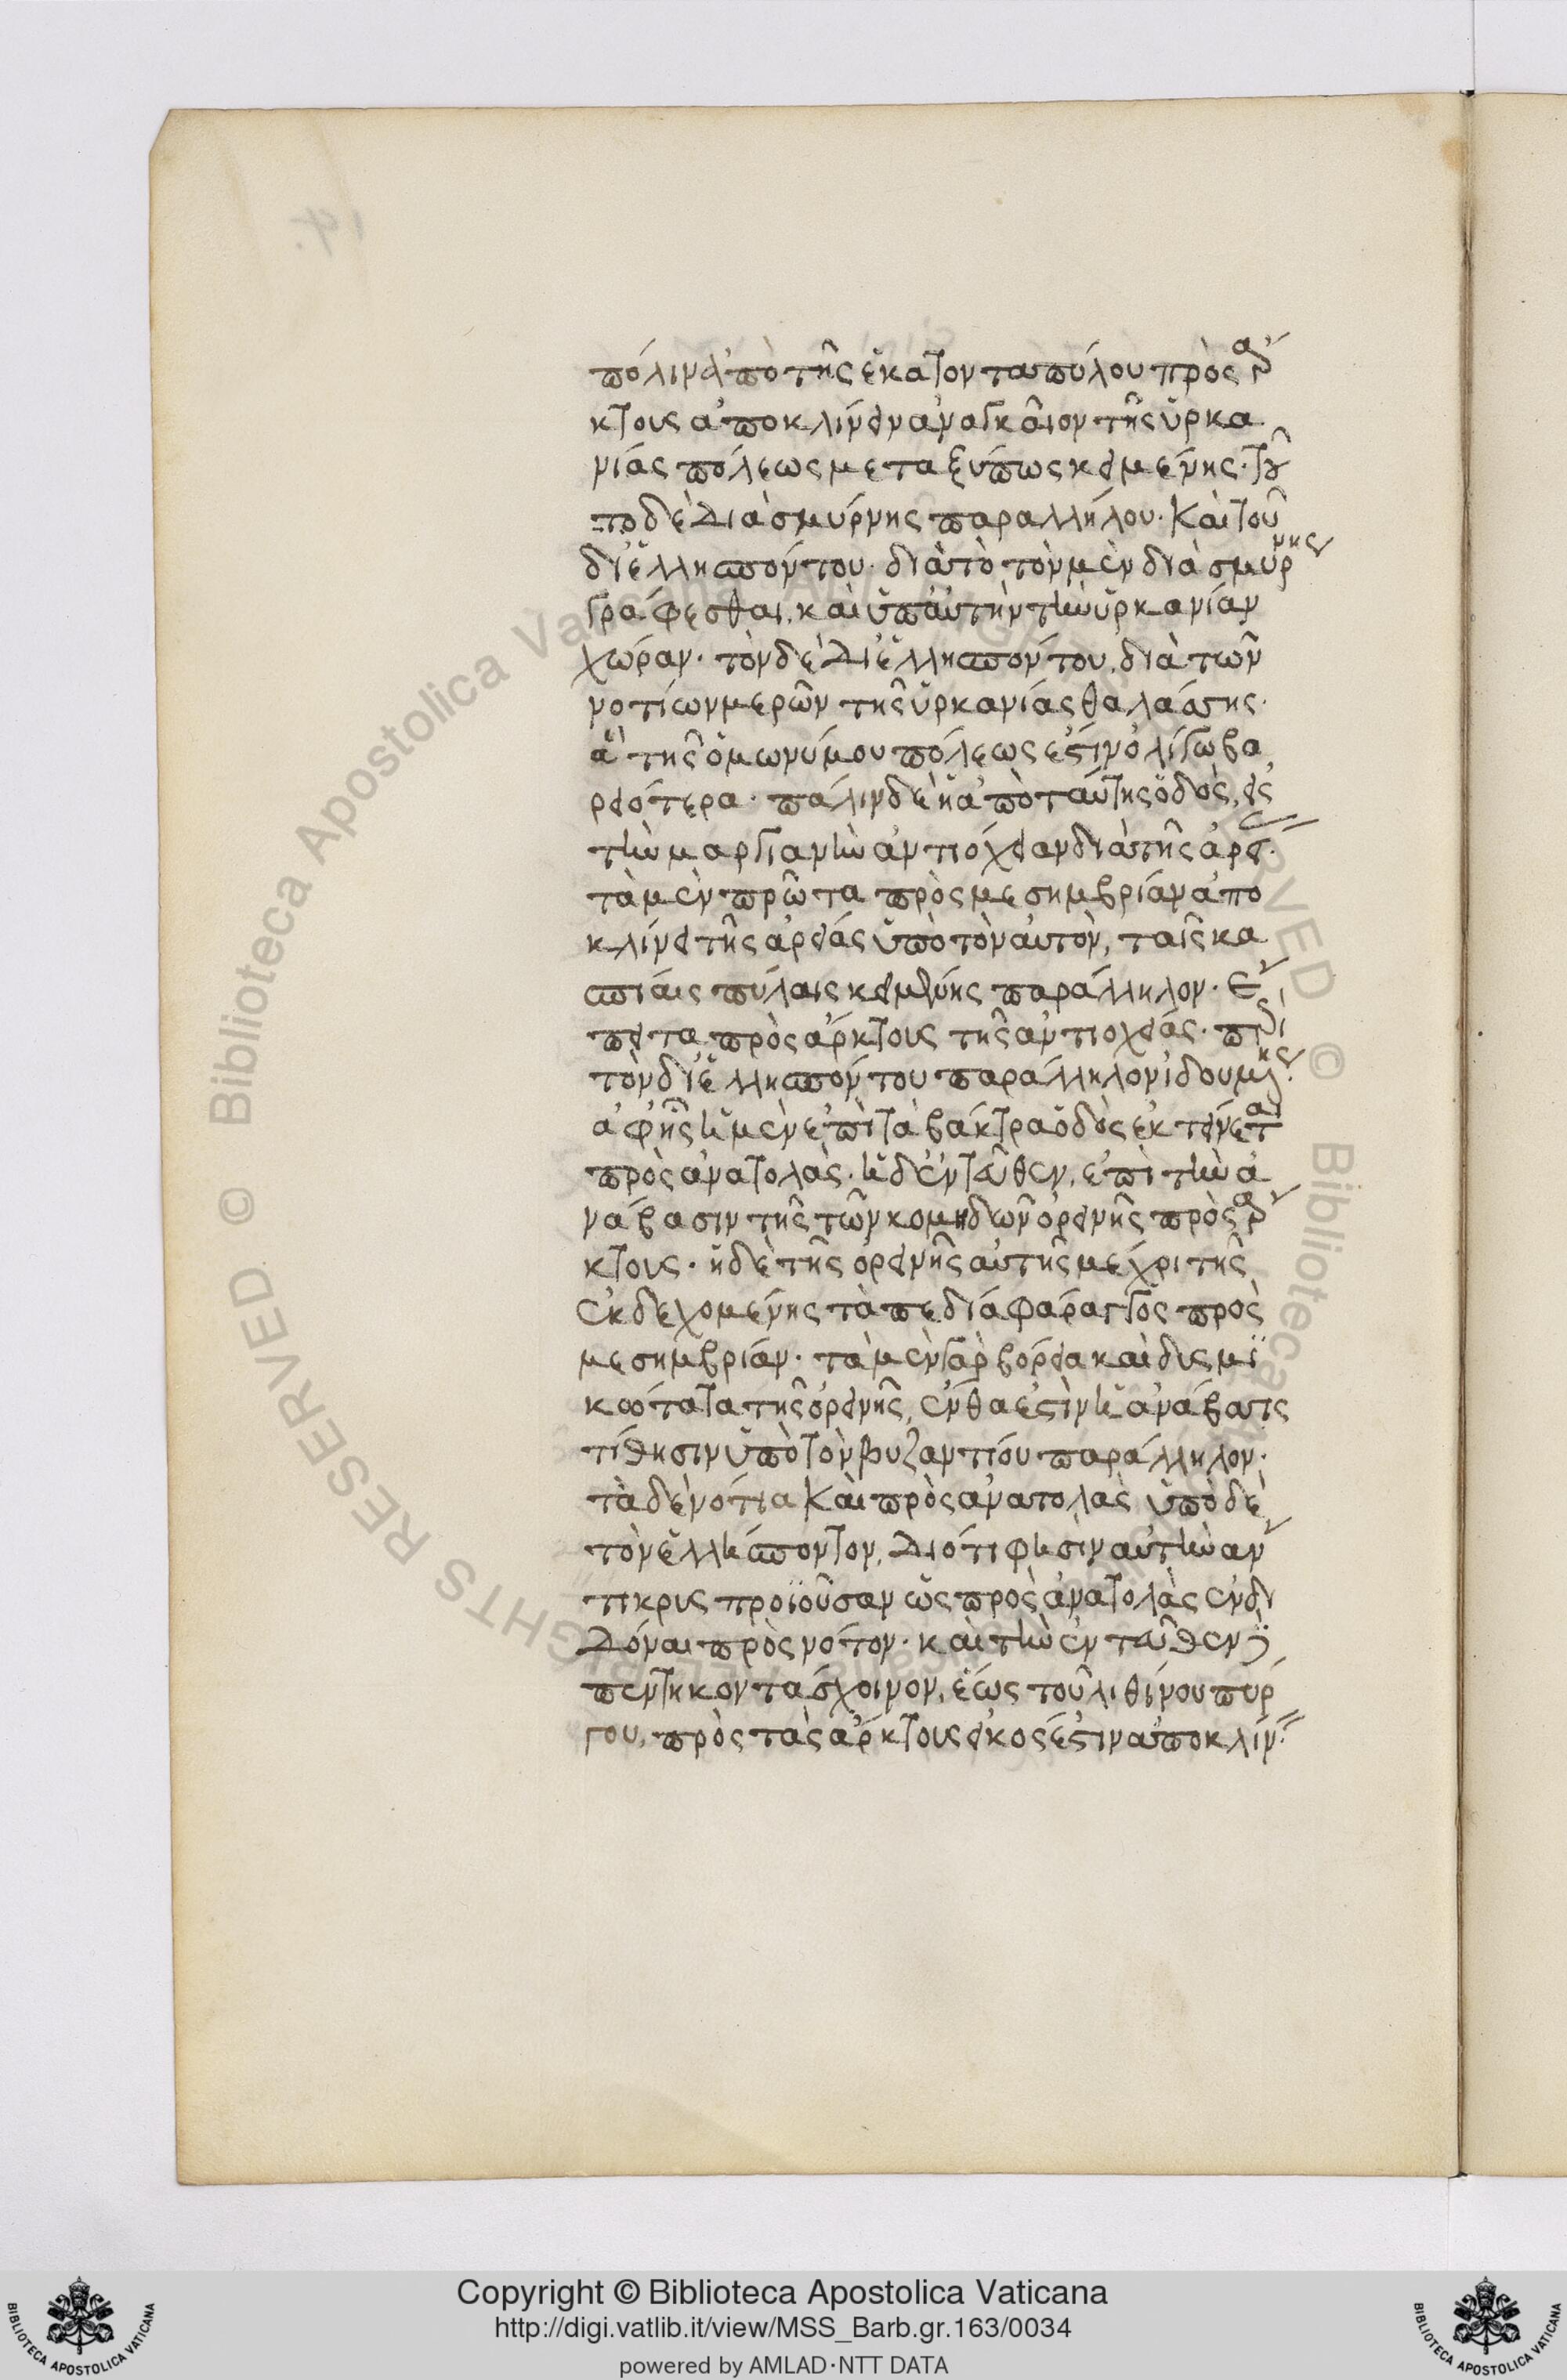 πόλιν ἀπὸ τῆς ἑκατονταπύλου πρὸς ἄρ
κτους ἀποκλίνειν ἀναγκαῖον τῆς ὑρκα
νίας πόλεως μεταξύ πως κειμένης· τοῦ
το δὲ διὰ σμύρνης παραλλήλου· καὶ τοῦ
δι ἑλλησπόντου· διὰ τὸ τὸν μὲν διὰ σμύρνης
γράφεσθαι, καὶ ὑπ αὐτὴν τὴν ὑρκανίαν
χώραν· τὸν δὲ δι ἑλλησπόντου, διὰ τῶν
νοτίων μερῶν τῆς ὑρκανίας θαλάσσης·
ἃ τῆς ὁμωνύμου πόλεως ἐστὶν ὀλίγω βο
ρειότερα· πάλιν δὲ ἡ ἀπὸ ταύτης ὁδὸς, εἰς
τὴν μαργιανὴν ἀντιόχειαν διὰ τῆς ἀρεί·
τὰ μὲν πρῶτα πρὸς μεσημβρίαν ἀπο
κλίνει τῆς ἀρείας ὑπὸ τὸν αὐτὸν, ταῖς κα
σπίαις πύλαις κειμένης παράλληλον· ἔ
πειτα πρὸς ἄρκτους τῆς ἀντιοχείας· περὶ
τὸν δι ἑλλησπόντου παράλληλον ἱδρυμένης·
ἀφ ἧς ἡ μὲν ἐπὶ τὰ βάκτρα ὁδὸς ἐκτείνεται
πρὸς ἀνατολάς· ἡ δ ἐνταῦθεν, ἐπὶ τὴν ἀ
νάβασιν τῆς τῶν κομηδῶν ὀρεινῆς πρὸς ἄρ
κτους· ἡ δὲ τῆς ὀρεινῆς αὐτῆς μέχρι τῆς
ἐκδεχομένης τὰ πεδία φάραγγος πρὸς
μεσημβρίαν· τὰ μὲν γὰρ βόρεια καὶ δυσμι
κώτατα τῆς ὀρεινῆς, ἔνθα ἐστὶν ἡ ἀνάβασις
τίθησιν ὑπὸ τὸν βυζαντίου παράλληλον·
τὰ δὲ νότια καὶ πρὸς ἀνατολὰς ὑπὸ δὲ
τὸν ἑλλήσποντον, διότι φησὶν αὐτὴν ἄν
τικρυς προϊοῦσαν ὡς πρὸς ἀνατολὰς ἐνδι
δόναι πρὸς νότον· καὶ τὴν ἐνταῦθεν δὲ
πεντηκοντάσχοινον, ἕως τοῦ λιθίνου πύρ
γου, πρὸς τὰς ἄρκτους εἰκός ἐστιν ἀποκλίν·
Copyright © Biblioteca Apostolica Vaticana
http://digi.vatlib.it/view/MSS_Barb.gr.163/0034
powered by AMLAD·NTT DATA